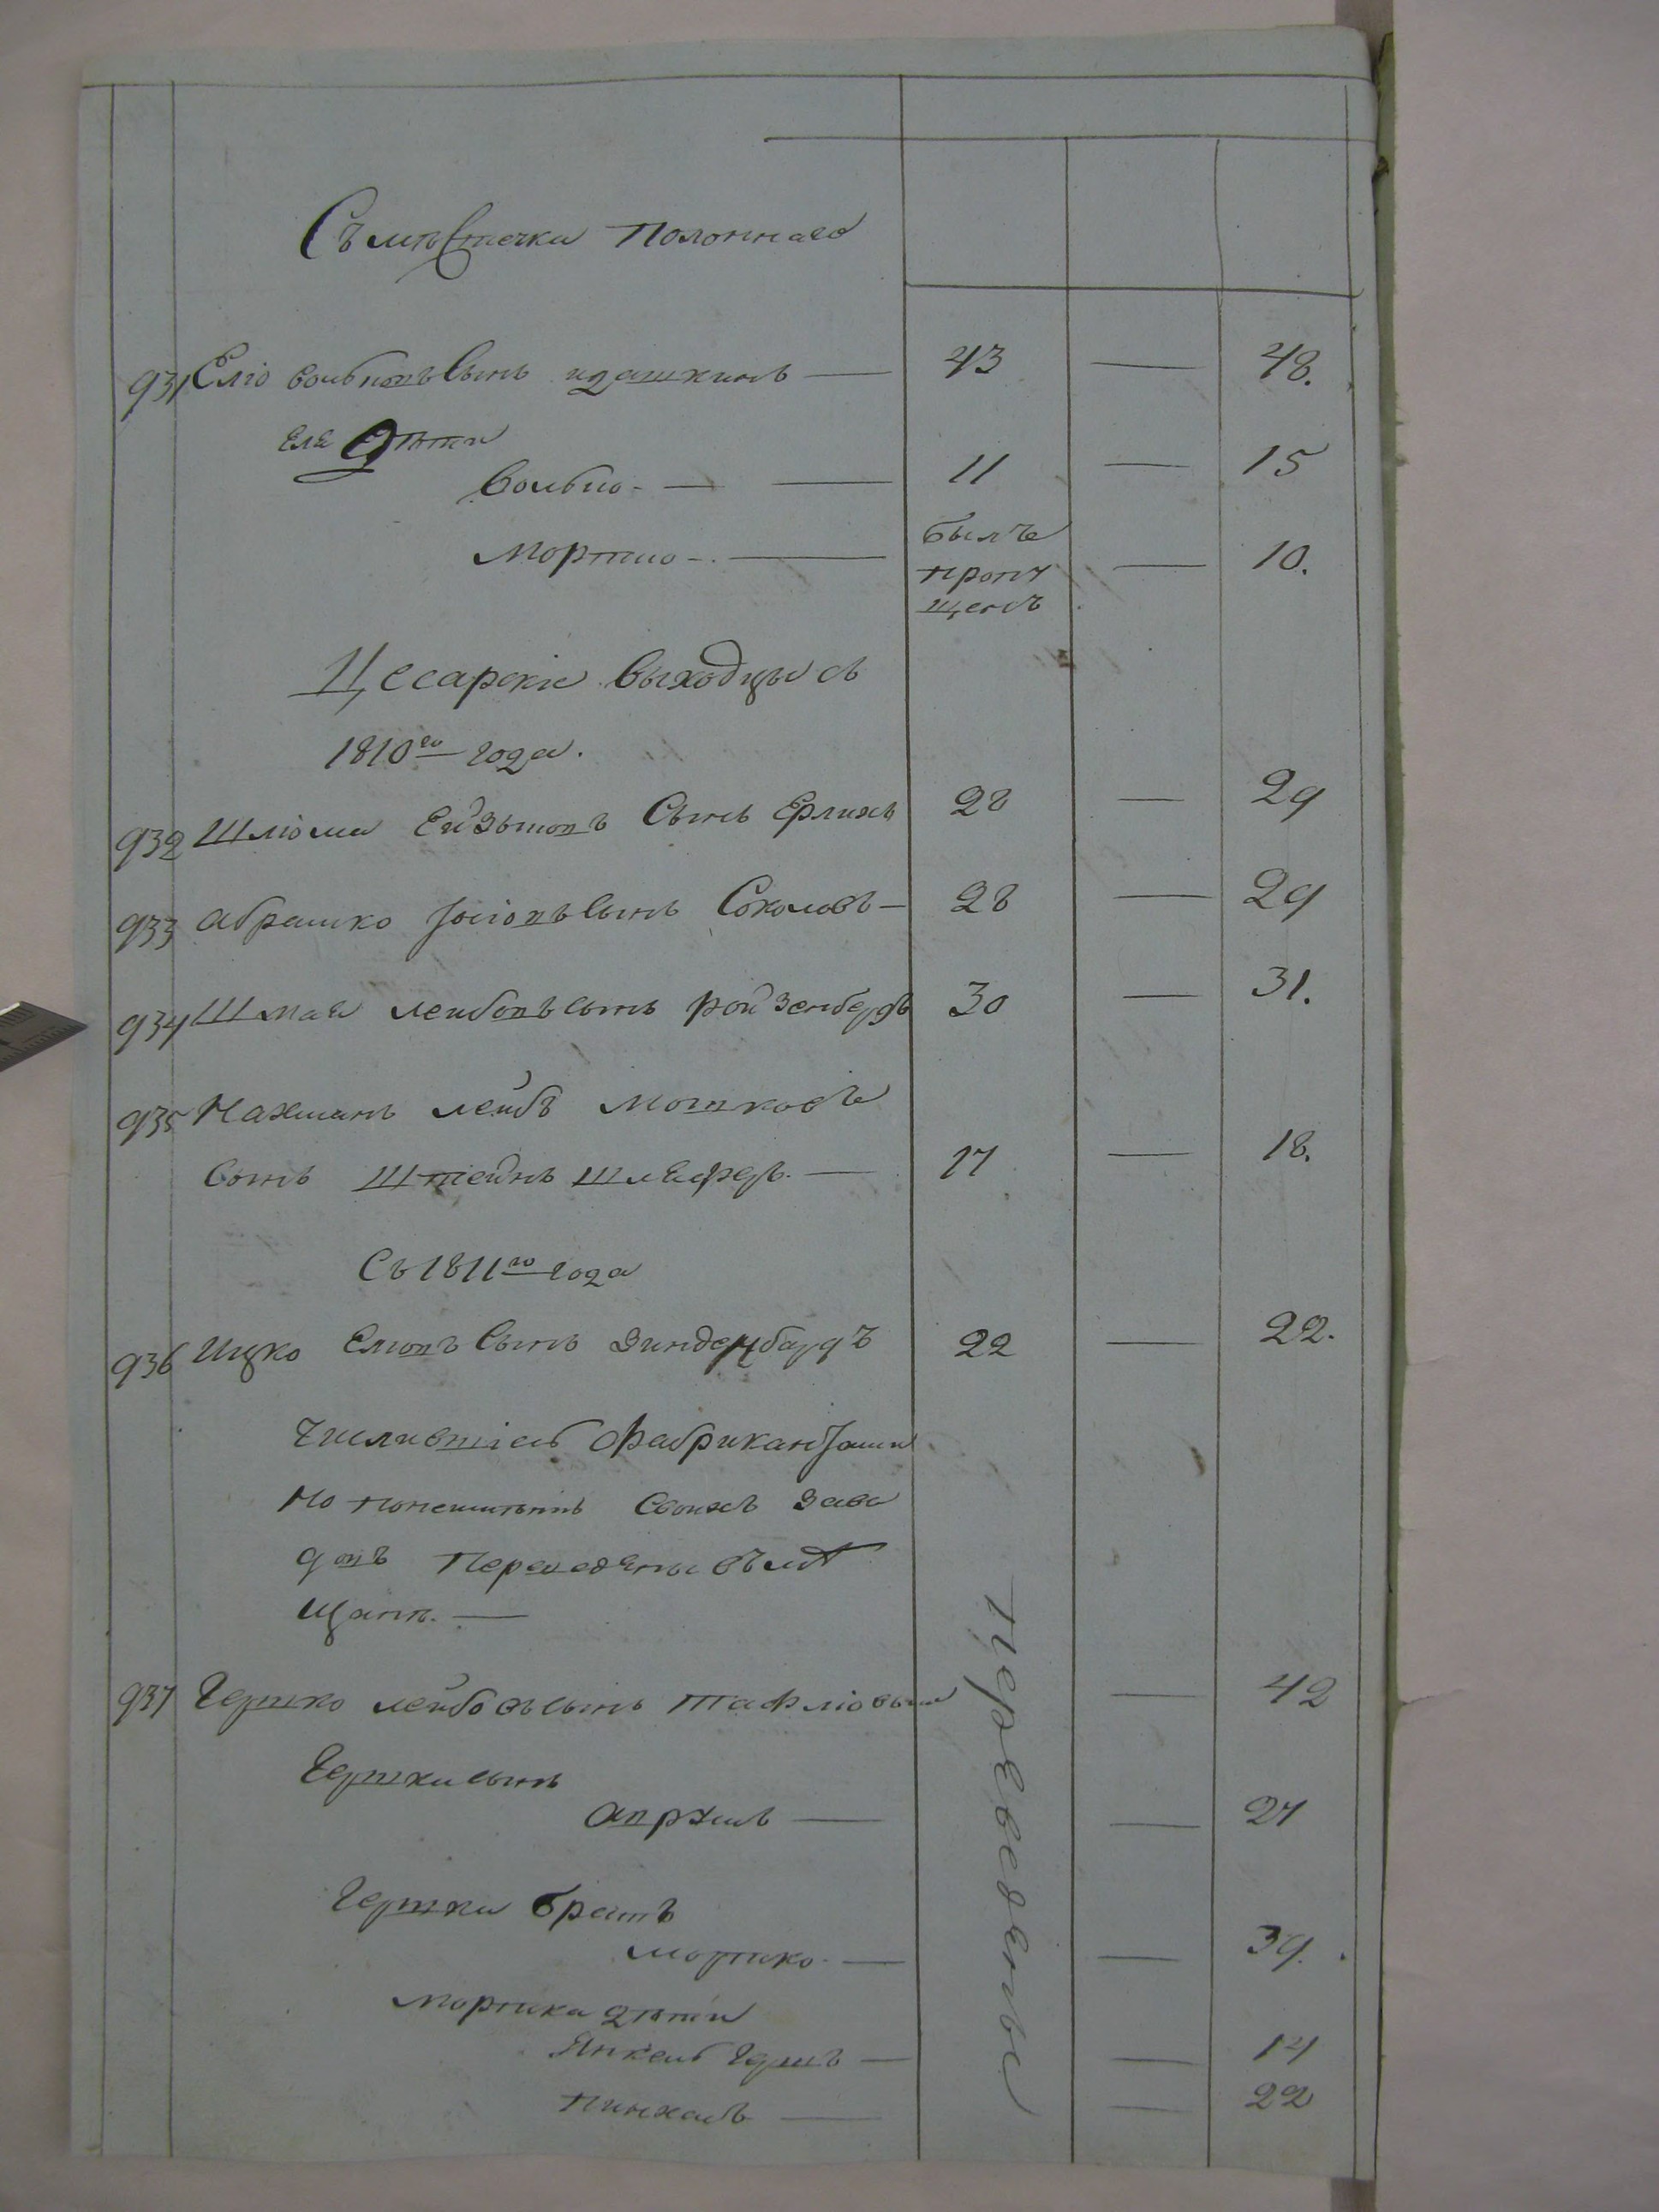 Съ местечка Полоннаго
931 Еліо Вольковъ Сынъ идашкинъ — 43 — 48.
Еля Дѣти
Вольпо — 11 — 15
Мортко — былъ пропу щенъ — 10.
Цесарскіе выходцы съ
1810го года.
932 Шліома Ейзыковъ Сынъ Ерлихъ 28 — 29
933 Абрашко Іосіовъ Сынъ Соколовъ — 28 — 29
934 Шмая Лейбовъ сынъ Ройзенбергъ 30 — 31.
935 Нахманъ Лейбъ Мошковъ
Сынъ Штейнъ Шлейферъ — 17 — 18.
Съ 1811го года
936 Ицко Еліовъ Сынъ 22 — 22.
Числившіесь Фабрикантами
Но понеимѣнію Своихъ Заво
довъ Переведены въ мѣ
щане. —
937 Гершко Лейбовъ сынъ Тафліовый — 42
Гершки сынъ
Аврумъ — 21
Гершки братъ
Мортко — 39.
Мортка дѣти
Янкель Гершъ — 14
Пинхасъ — 22
переведены